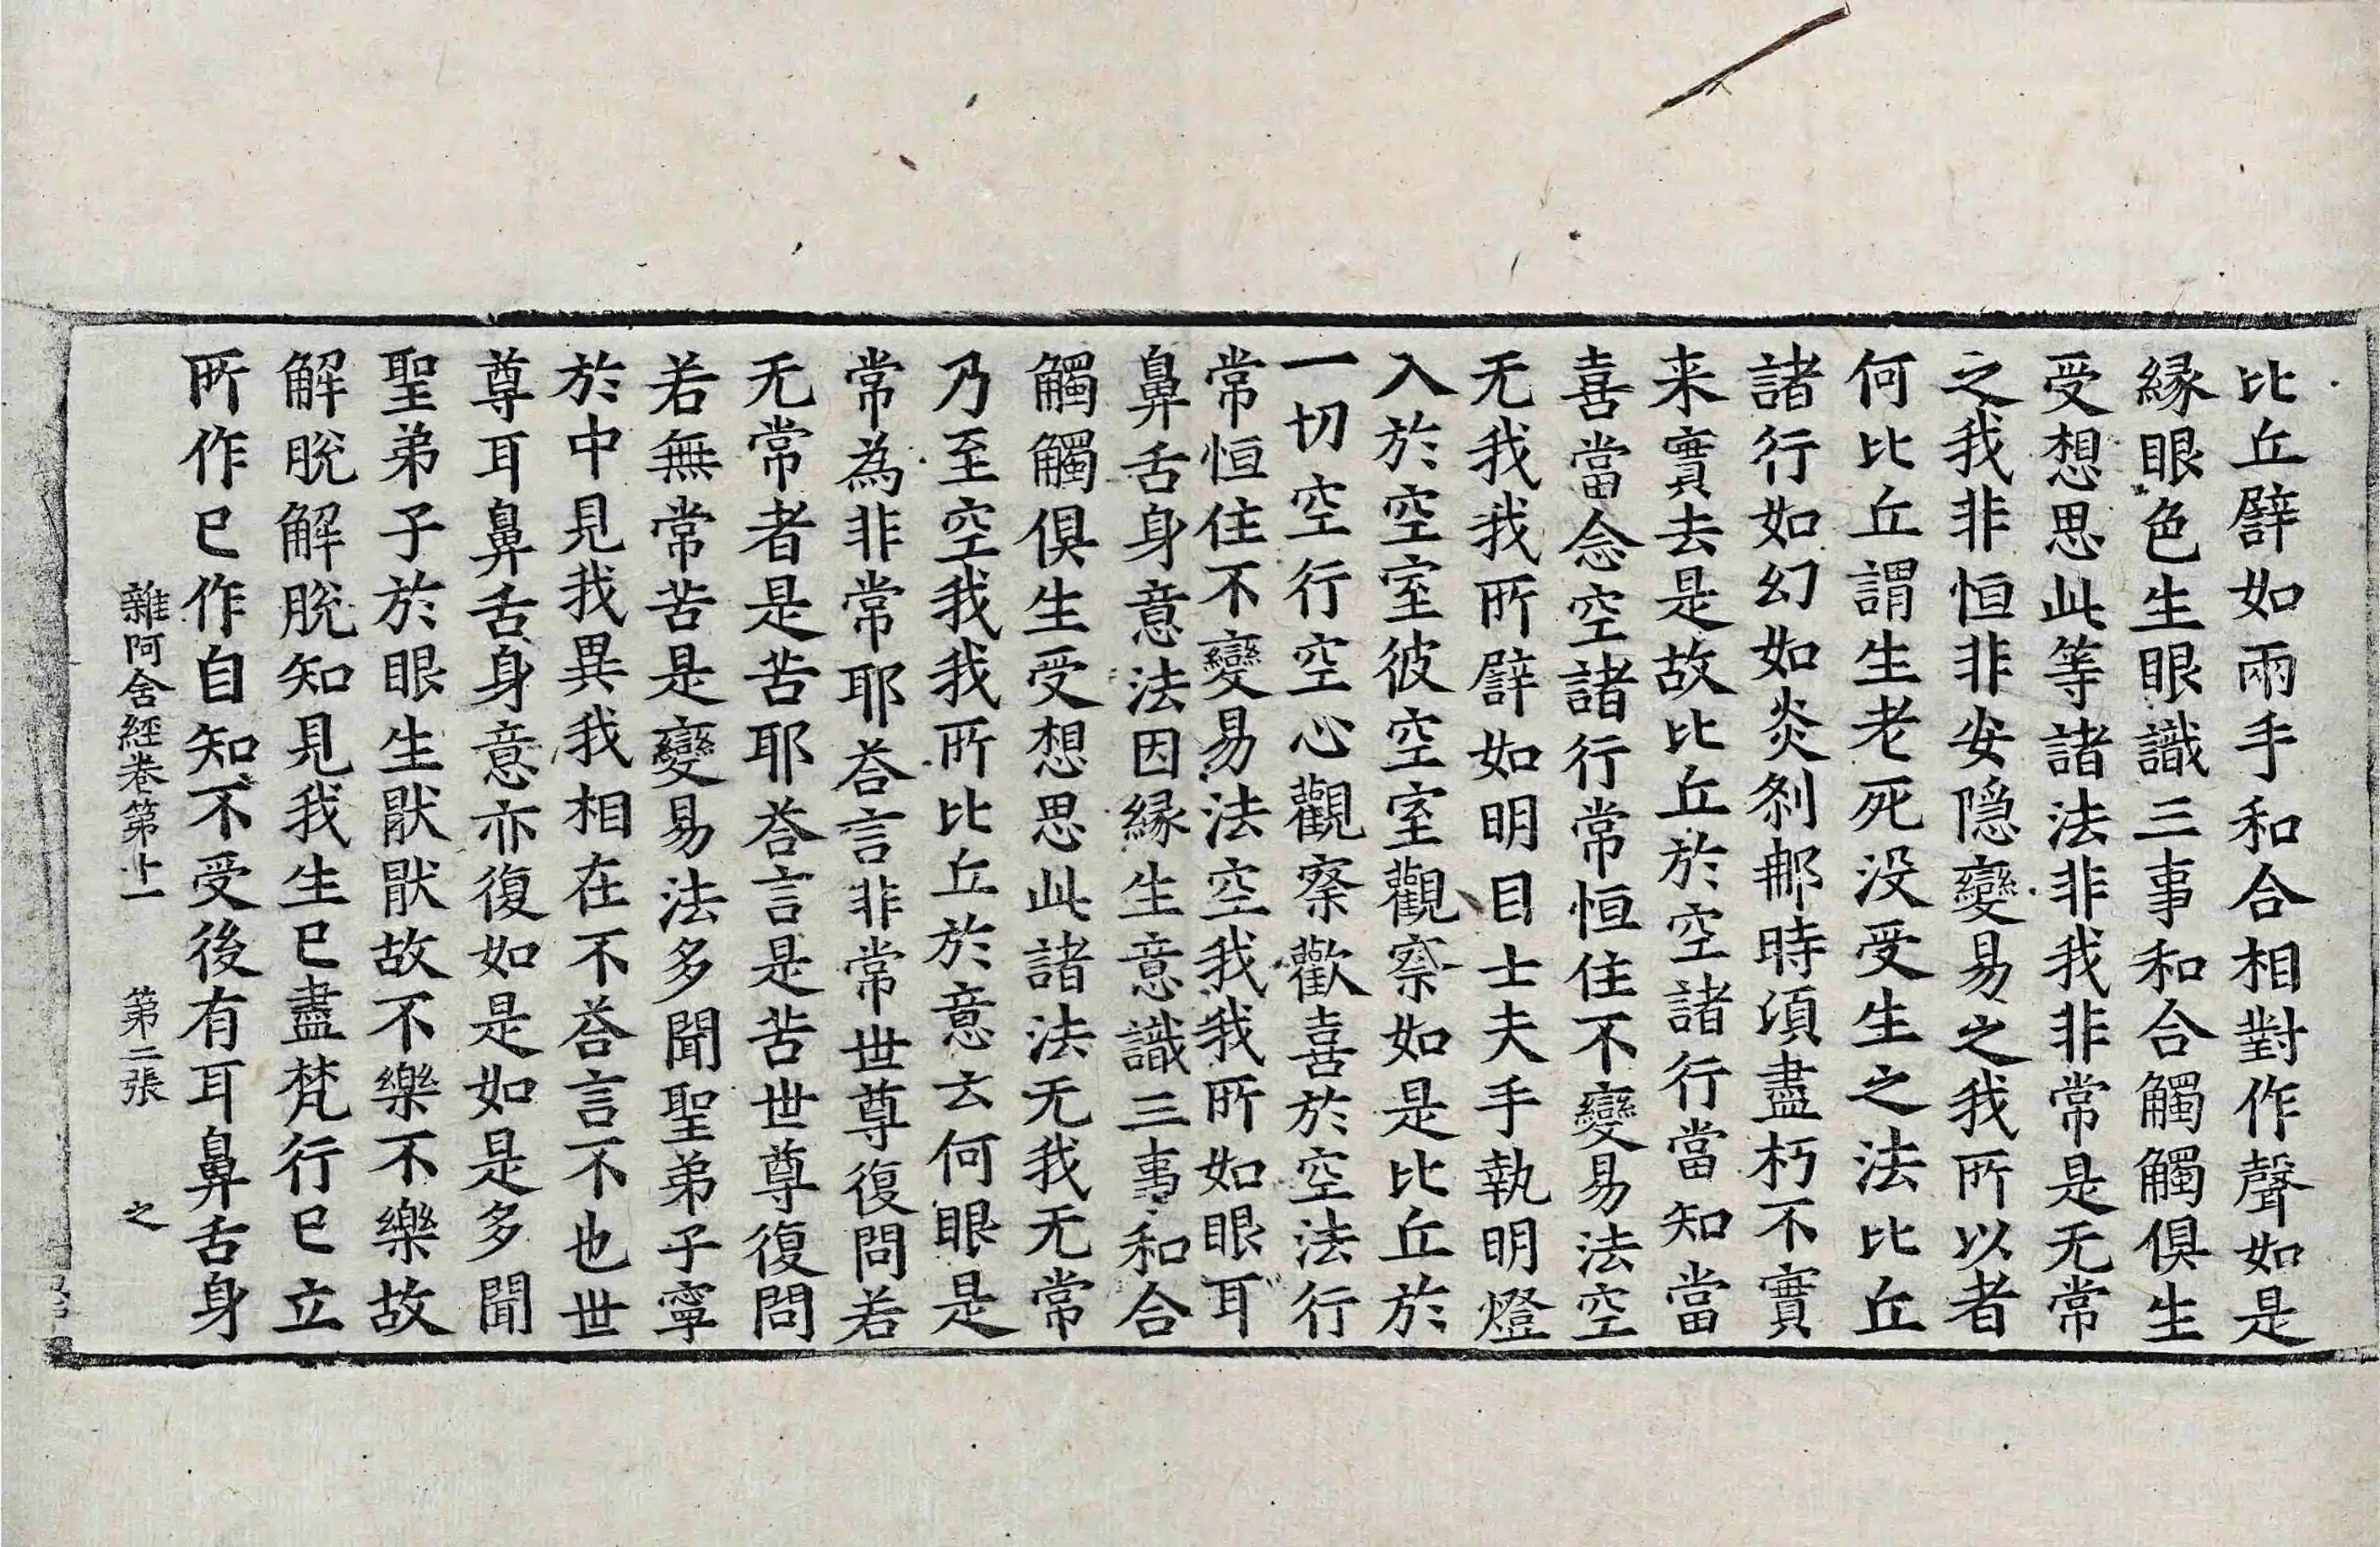 比丘譬如兩手和合相對作聲如是
縁眼色生眼識三事和合觸觸俱生
受想思此等諸法非我非常是无常
之我非恒非安隠變易之我所以者
何比丘謂生老死没受生之法比丘
諸行如幻如炎刹那時湏盡朽不實
来實去是故比丘於空諸行當知當
喜當念空諸行常恒住不變易法空
无我我所譬如明目士夫手執明燈
入於空室彼空室觀察如是比丘於
一切空行空心觀察歡喜於空法行
常恒住不變易法空我我所如眼耳
鼻舌身意法因縁生意識三事和合
觸觸俱生受想思此諸法无我无常
乃至空我我所比丘於意云何眼是
常為非常耶荅言非常世尊復問若
无常者是苦耶荅言是苦世尊復問
若無常苦是變易法多聞聖弟子寧
於中見我異我相在不荅言不也世
尊耳鼻舌身意亦復如是如是多聞
聖弟子於眼生猒猒故不樂不樂故
解脫解脫知見我生已盡梵行已立
所作已作自知不受後有耳鼻舌身
雜阿含經卷第十一　第二張　之